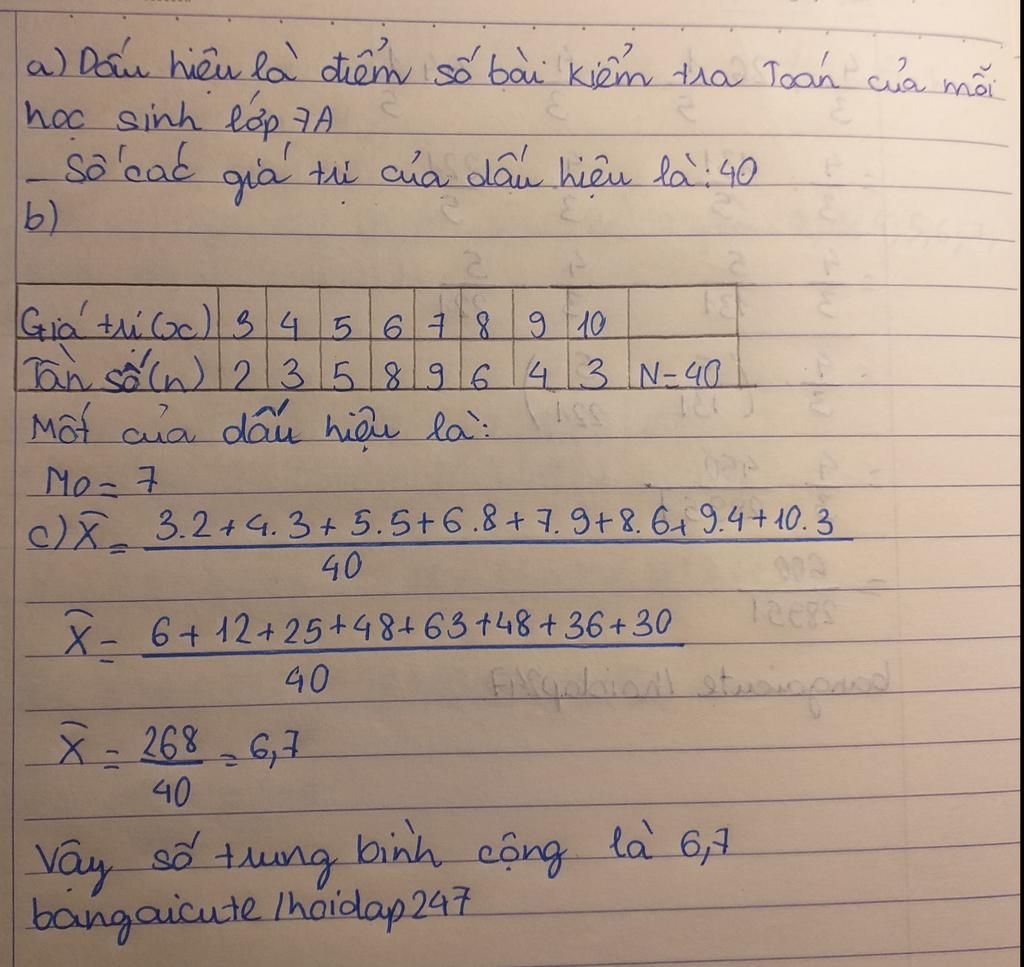 a) Dấu hiệu là điểm số bài kiểm tra Toán của mỗi
học sinh lớp 7A
- Số các giá trị của dấu hiệu là: 40
b)
Giá trị (x) 3 4 5 6 7 8 9 10
Tần số (n) 2 3 5 8 9 6 4 3 N=40
Mốt của dấu hiệu là:
Mo = 7
c) X̄ = 3.2+4.3+5.5+6.8+7.9+8.6+9.4+10.3
40
X̄ = 6+12+25+48+63+48+36+30
40
X̄ = 268 = 6,7
40
Vậy số trung bình cộng là 6,7
bangaicute/hoidap247